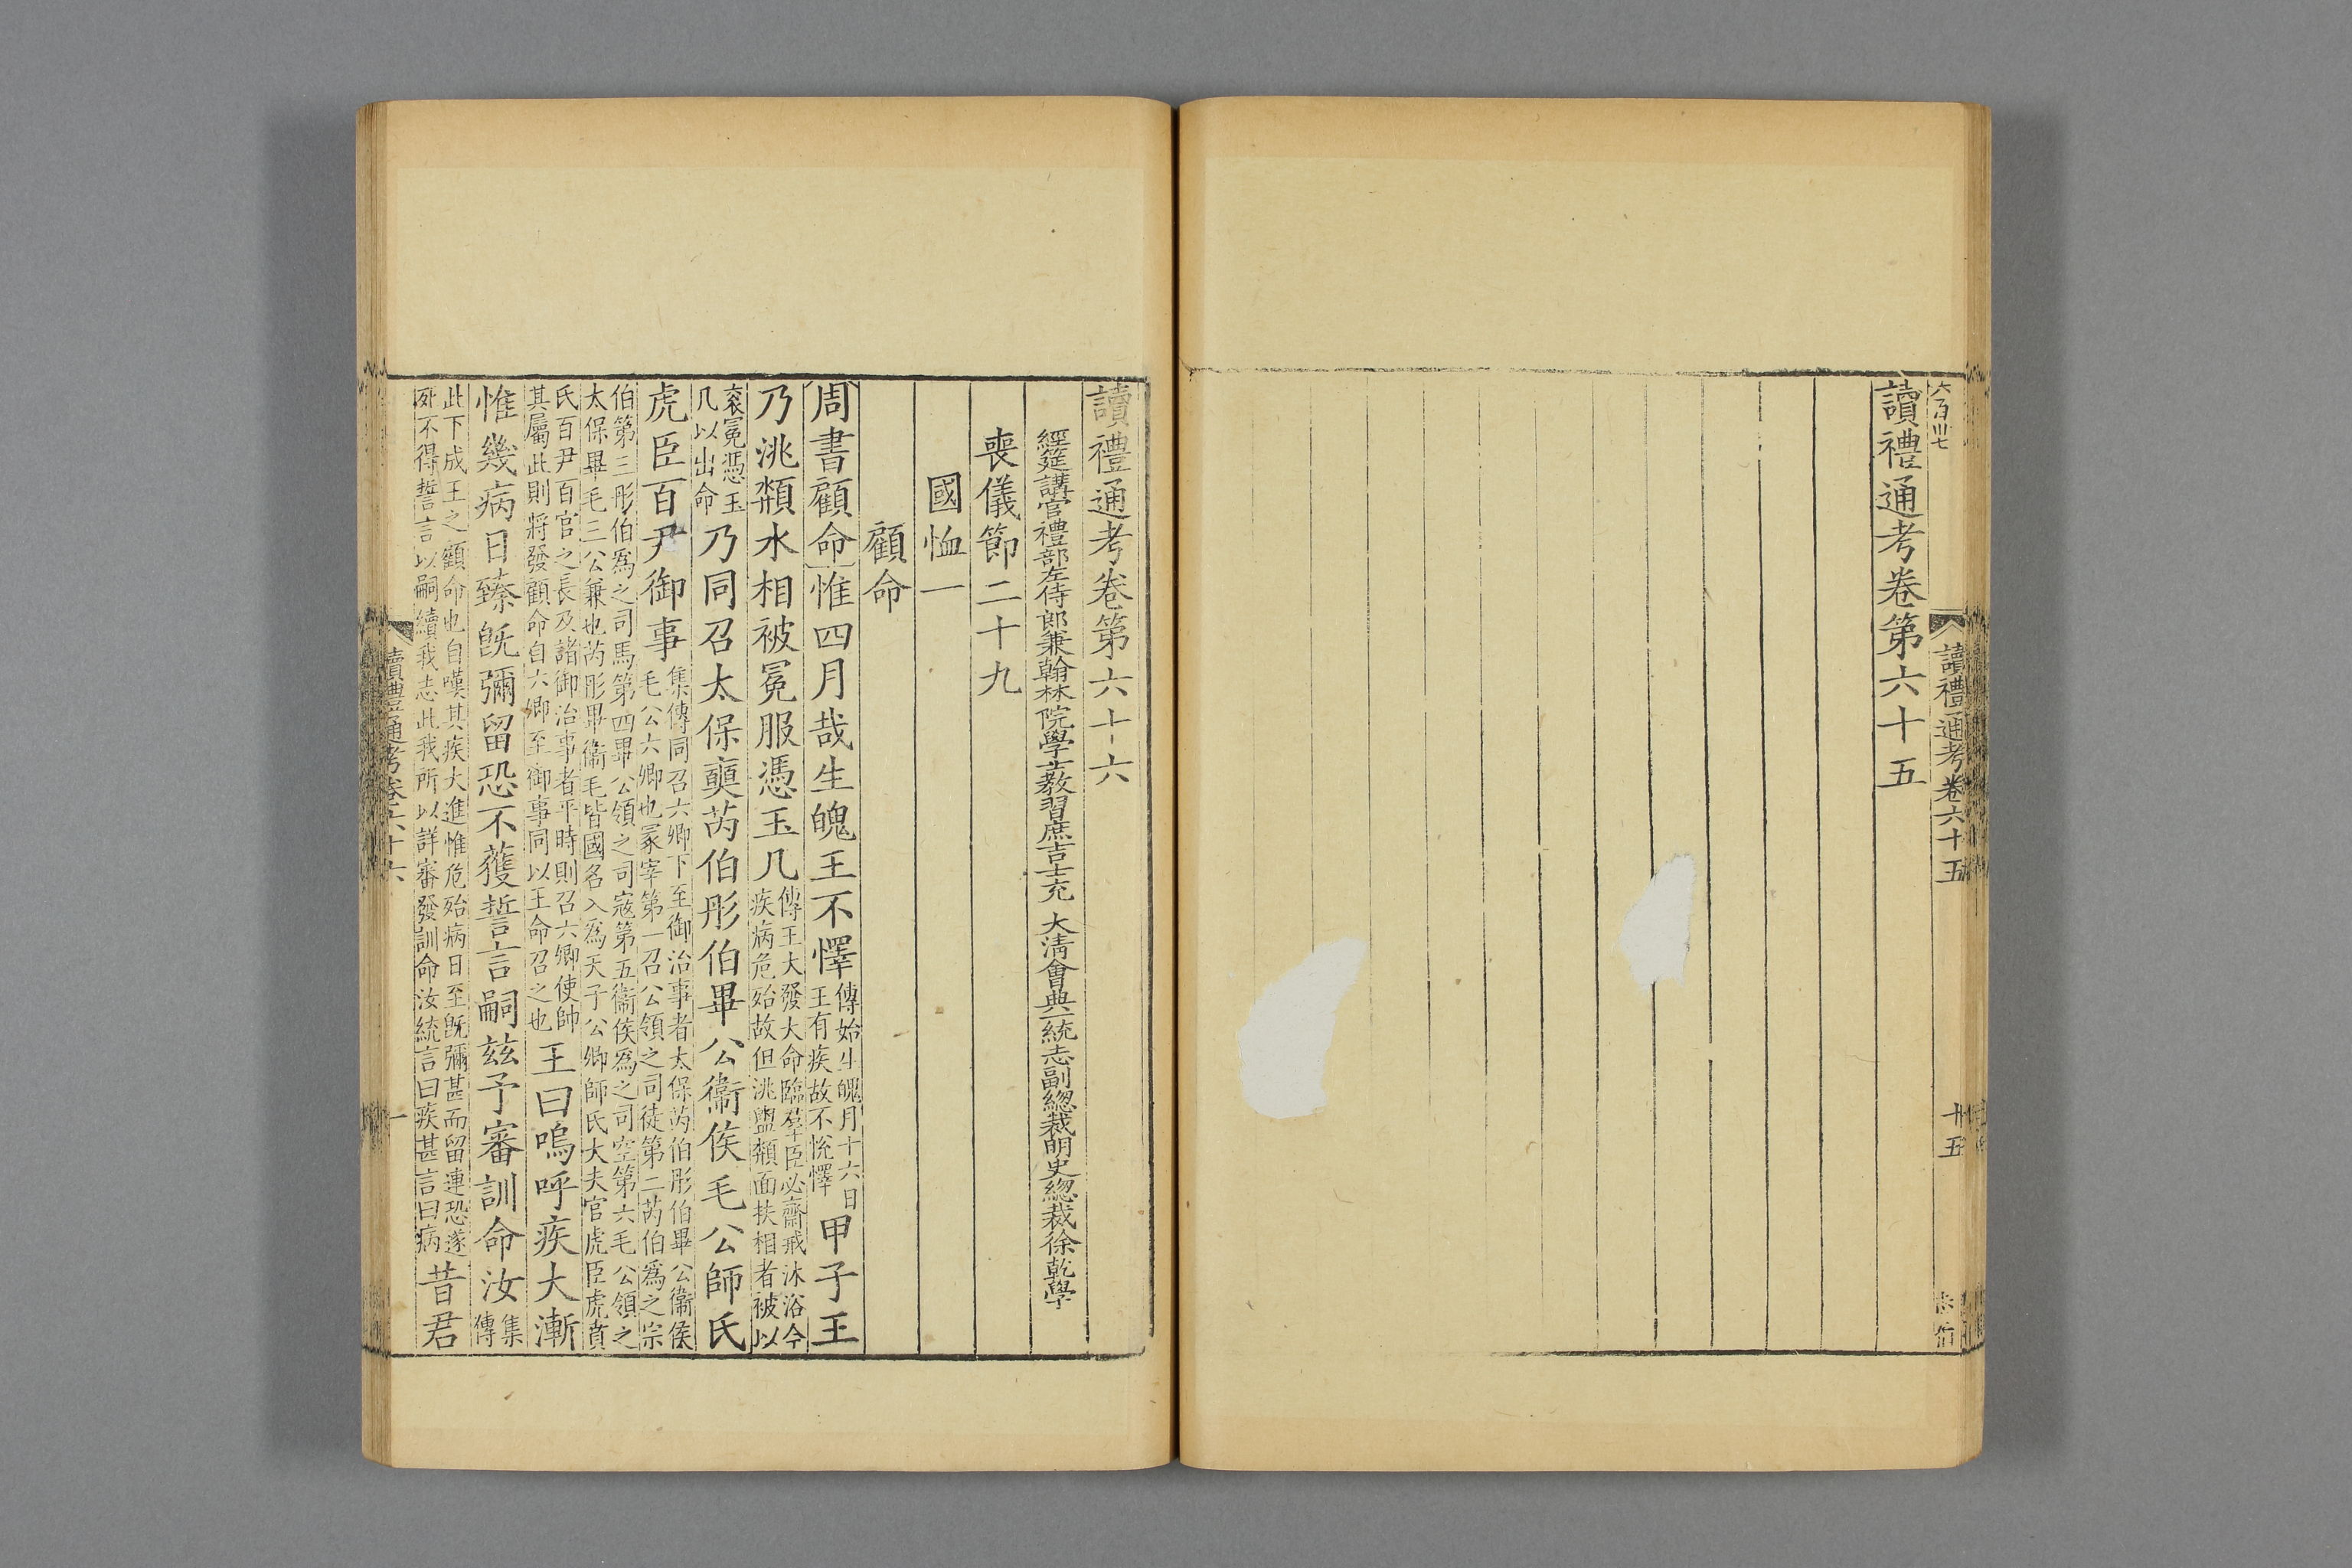 六百川七
讀禮通考卷六十五
卄五
讀禮通考卷第六十五
讀禮通考卷第六十六
經筵講官禮部左侍郎兼翰林院學士教習庶吉士充 大清會典一統志副總裁明史總裁徐乾學
喪儀節二十九
國恤一
顧命
周書顧命惟四月哉生魄王不懌傳始生魄月十六日王有疾故不悅懌甲子王
乃洮頮水相被冕服憑玉几傳王大發大命臨羣臣必齋戒沐浴今疾病危殆故但洮盥頮面扶相者被以
袞冕憑玉几以出命乃同召太保奭芮伯彤伯畢公衞侯毛公師氏
虎臣百尹御事集傳同召六卿下至御治事者太保芮伯彤伯畢公衞侯毛公六卿也冢宰第一召公領之司徒第二芮伯爲之宗
伯第三彤伯爲之司馬第四畢公領之司寇第五衞侯爲之司空第六毛公領之太保畢毛三公兼也芮彤畢衞毛皆國名入爲天子公卿師氏大夫官虎臣虎賁
氏百尹百官之長及諸御治事者平時則召六卿使帥其屬此則將發顧命自六卿至御事同以王命召之也王曰嗚呼疾大漸
惟幾病日臻旣彌留恐不獲誓言嗣茲予審訓命汝集傳
此下成王之顧命也自嘆其疾大進惟危殆病日至旣彌甚而留連恐遂死不得誓言以嗣續我志此我所以詳審發訓命汝統言曰疾甚言曰病昔君
讀禮通考卷六十六
一